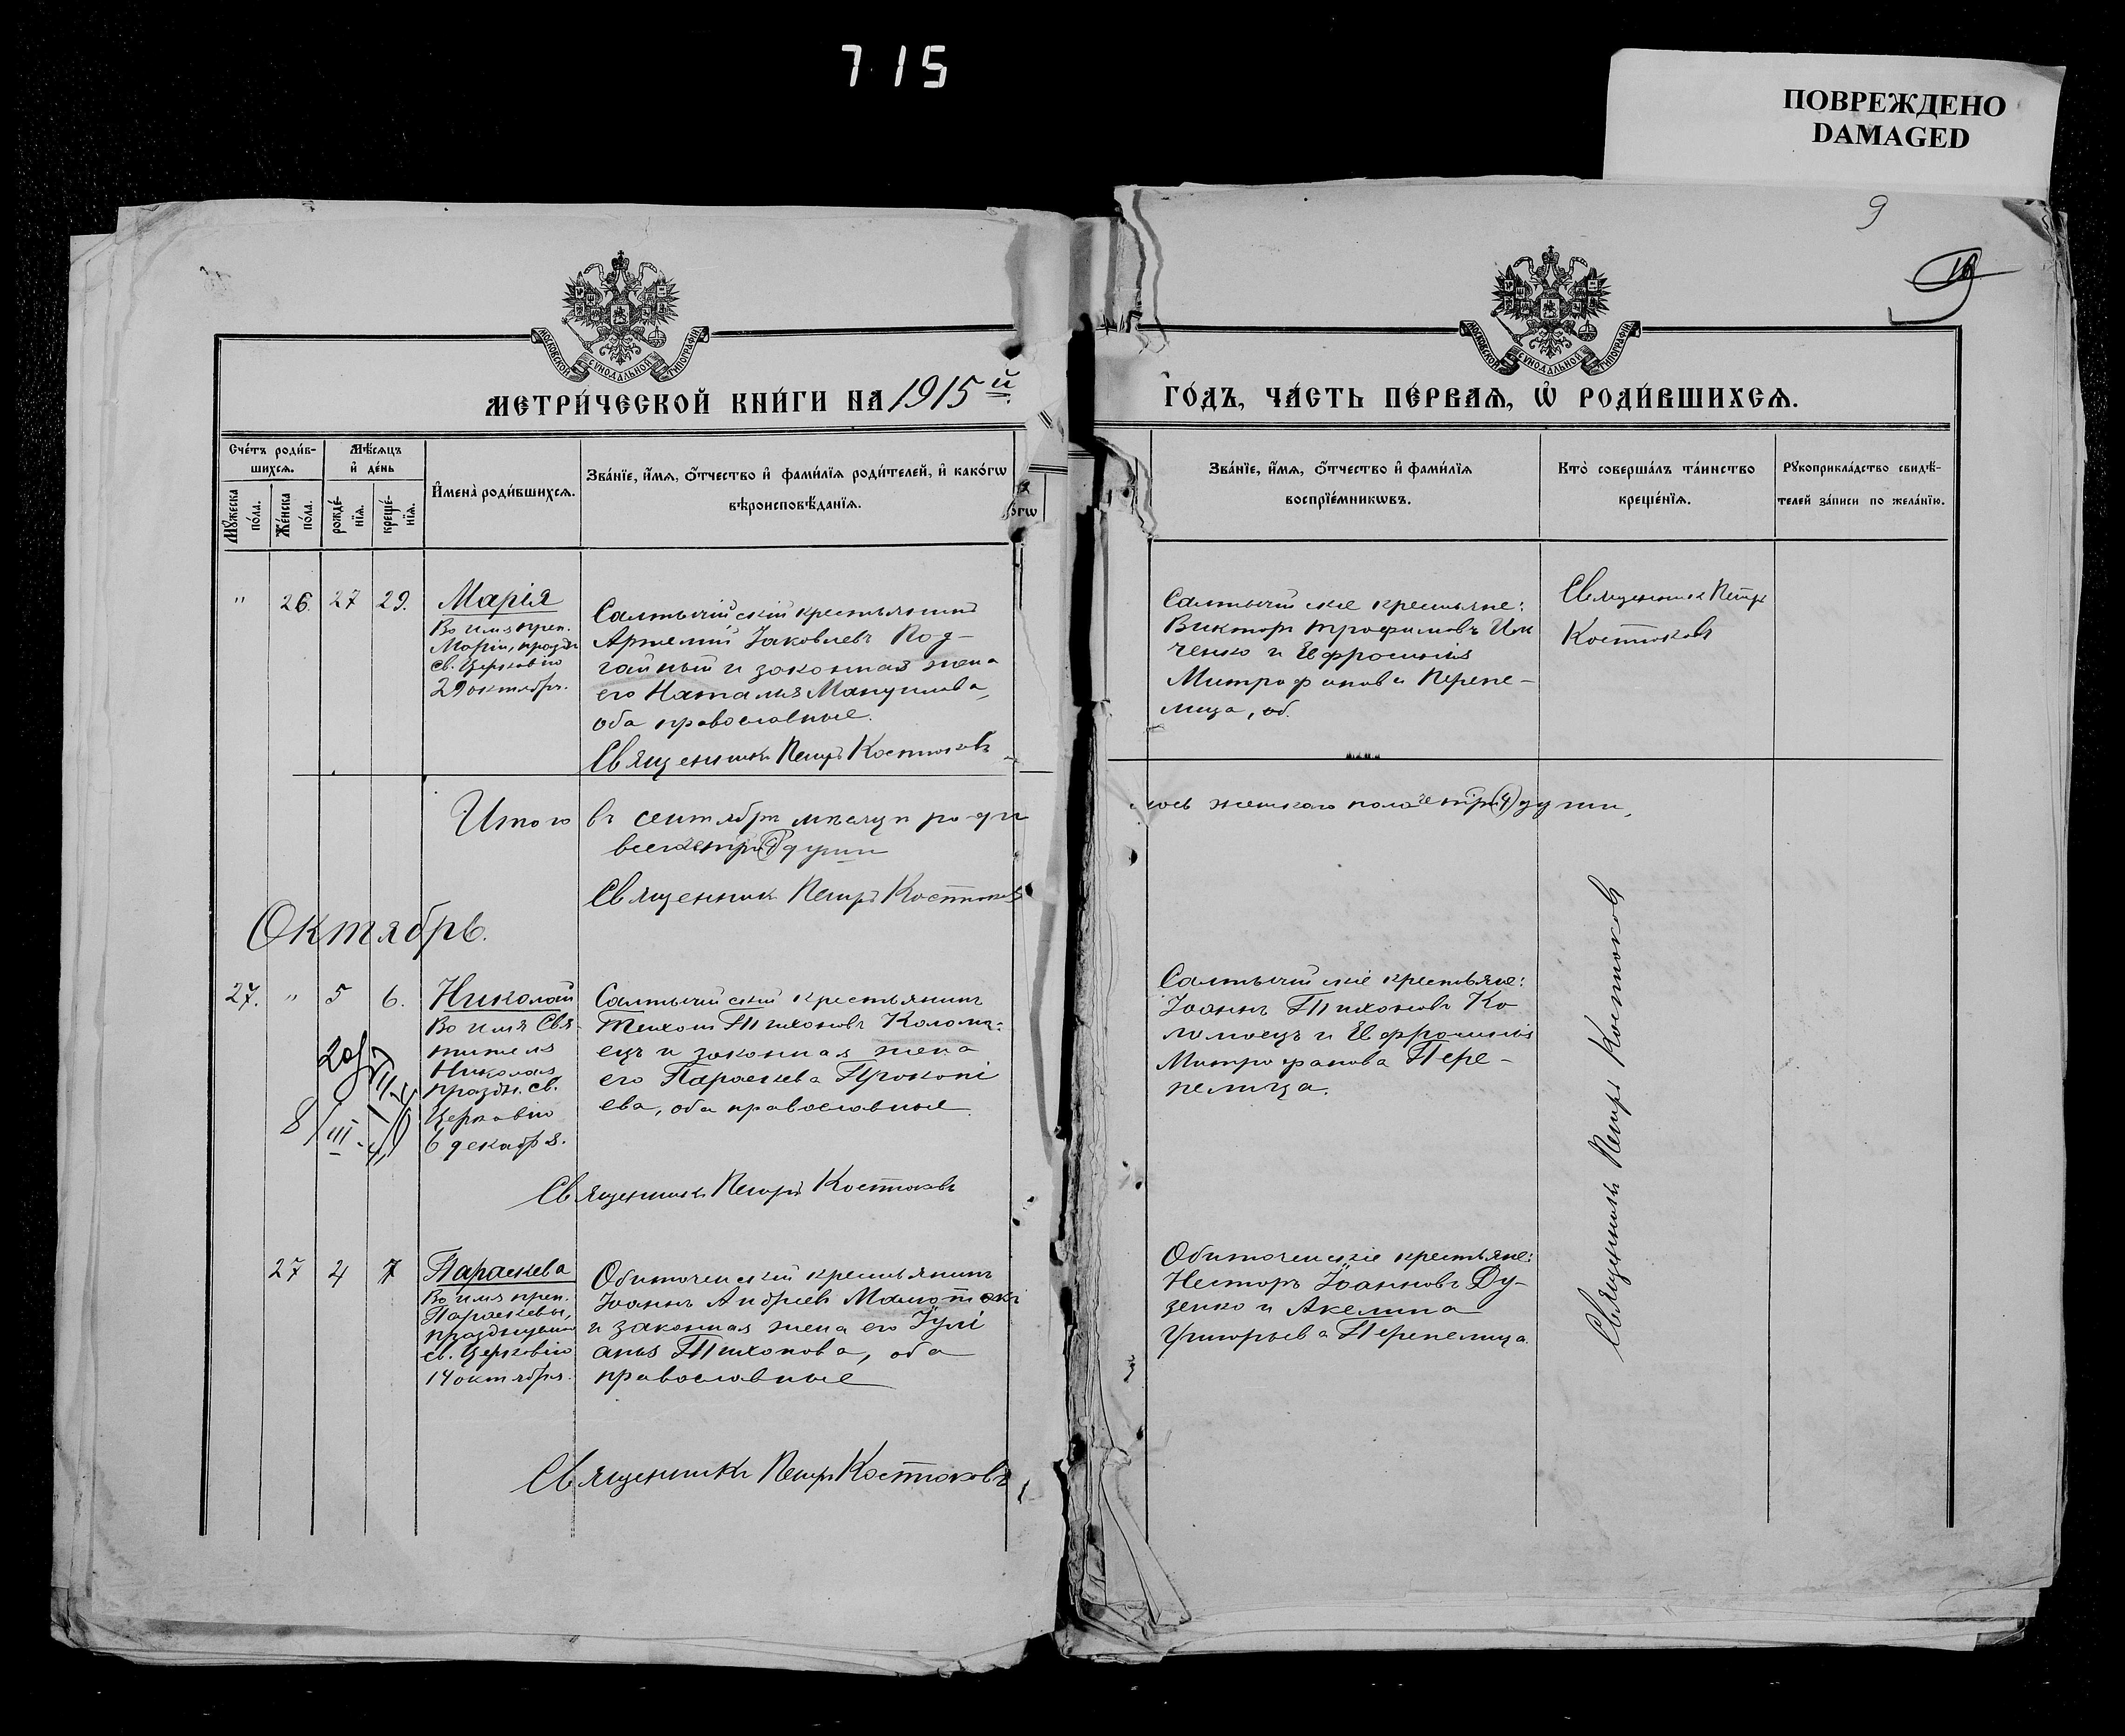 715
ПОВРЕЖДЕНО
DAMAGED
9
МОСКОВСКОЙ СѴНОДАЛЬНОЙ ТИПОГРАФІИ
МОСКОВСКОЙ СѴНОДАЛЬНОЙ ТИПОГРАФІИ
МЕТРИ́ЧЕСКОЙ КНИ́ГИ НА 1915й
ГО́ДЪ, ЧА́СТЬ ПЕ́РВАѦ, Ѡ҆ РОДИ́ВШИХСѦ.
Сче́тъ роди́в-
шихсѧ.
Мѣ́сѧцъ
и҆ де́нь
Мꙋ́жеска по́ла.
Же́нска по́ла.
рожде́-
нїѧ.
креще́-
нїѧ.
И҆мена̀ роди́вшихсѧ.
Зва́нїе, и҆́мѧ, ѻ҆́тчество и҆ фами́лїѧ роди́телей, и҆ како́гѡ
вѣроисповѣ́данїѧ.
Зва́нїе, и҆́мѧ, ѻ҆́тчество и҆ фами́лїѧ
воспрїе́мникѡвъ.
Кто̀ соверша́лъ та́инство
креще́нїѧ.
Рꙋкоприкла́дство свидѣ́-
телей за́писи по жела́нїю.
" 26. 27 29. Марія
Во имя преп.
Маріи, праздн
св. Церковію
29 октября.
Салтычійскій крестьянинъ
Артемій Іаковлевъ Под-
гайный и законная жена
его Наталия Мануилова,
оба православные.
Священникъ Петръ Костюковъ
Салтычійскіе крестьяне:
Викторъ Трофимовъ
ченко и Ефросинія
Митрофанова Перепе-
лица, об.
Священникъ Петръ
Костюковъ
Итого въ сентябрѣ мѣсяцѣ роди
лось женскаго пола четыре (4) души,
всего четыре души
Священникъ Петръ Костюковъ
Октябрь.
27. " 5 6. Николай
Во имя Свя-
тителя
Николая
праздн. св.
Церковію
6 декабря.
8/III
Салтычійскій крестьянинъ
Тихонъ Тихоновъ Колом-
ецъ и законная жена
его Параскева Прокопі
ева, оба православные
Священникъ Петръ Костюковъ
Салтычійскіе крестьяне:
Іоаннъ Тихоновъ Ко
ломоецъ и Ефросинія
Митрофанова Пере-
пелица.
Священникъ Петръ Костюковъ
27 4 7 Параскева
Во имя преп.
Параскевы,
празднуемой
св. Церковію
14 октября.
Обиточенскій крестьянинъ
Іоаннъ Андреевъ
и законная жена его Іулі
анія Тихонова, оба
православные
Обиточенскіе крестьяне:
Несторъ Іоанновъ Ду-
денко и Акелина
Григорьева Перепелица
Священникъ Петръ Костюковъ